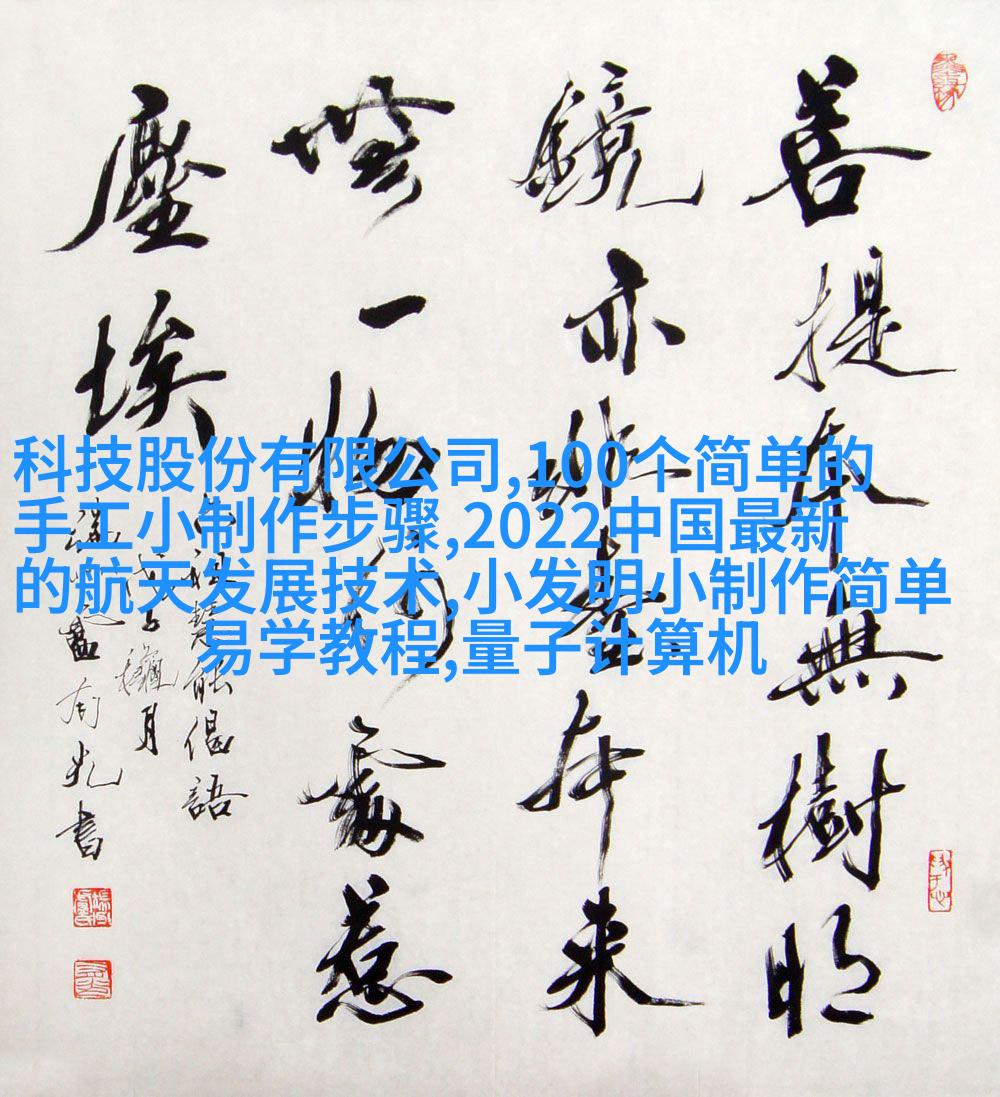 菩提本無樹明
鏡亦非臺本来
無一物何處惹
塵埃
六祖慧能偈語
科技股份有限公司,100个简单的
手工小制作步骤,2022中国最新
的航天发展技术,小发明小制作简单
易学教程,量子计算机